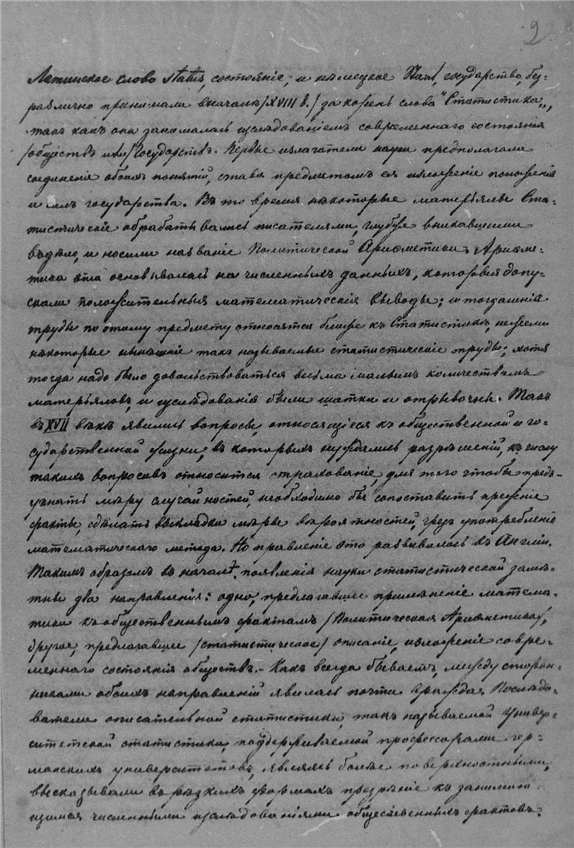 2
Латинское слово status, состоянiе, и нѣмецкое Staat, государство, бу-
различно принимали вначалѣ (XVIII в.) за корень слова "Статистика",
такъ какъ она занималась изслѣдованiемъ современнаго состоянiя
обществъ или Государствъ. Первые излагатели науки предполагали
соединенiе обоихъ понятiй, ставя предметомъ ея изложенiе положенiя
государства. Въ то время нѣкоторые матерьялы Ста-
тистическiе обработывались писателями, глубже вникавшими
въ дѣло, и носили названiе Политической Ариөметики. Ариөме-
тика эта основывалась на численныхъ данныхъ, которыя допу-
скали положительныя математическiя выводы; и тогдашнiе
труды по этому предмету относятся ближе къ Статистикѣ, нежели
некоторые нынѣшнiе такъ называемые статистическiе труды; хотя
тогда надо было довольствоваться весьма малымъ количествомъ
матерьяловъ, и изслѣдованiя были шатки и отрывочны. Такъ
въ XVII вѣкѣ явились вопросы, относящiеся къ общественной и го-
сударственной жизни, въ которыхъ нуждались разрѣшенiй, къ числу
такихъ вопросовъ относится страхованiе, для того чтобы предъ-
узнать мѣру случайностей, необходимо бы сопоставить прежнiе
факты, сдѣлать выкладки мѣры вѣроятностей, чрезъ употребленiе
математическаго метода. Но правленiе это развивалось въ Англiи.
Такимъ образомъ въ началѣ появленiя науки статистической замѣ-
тны два направленiя: одно, предлагавшее примѣненiе матема-
тики къ общественнымъ фактамъ (Политическая Ариөметика),
другое, предлагавшее (статистическое) описанiе, изложенiе совре-
меннаго состоянiя обществъ. - Какъ всегда бываетъ, между сторон-
никами обоихъ направленiй явилась почти вражда. Послѣдо-
ватели описательной статистики, такъ называемой Универ-
ситетской статистики поддерживаемой профессорами гер-
манскихъ университетовъ, являясь болѣе поверхностными,
высказывали въ рѣзкихъ формахъ презрѣнiе къ занимаю-
щимся численными изслѣдованiями общественныхъ фактовъ.